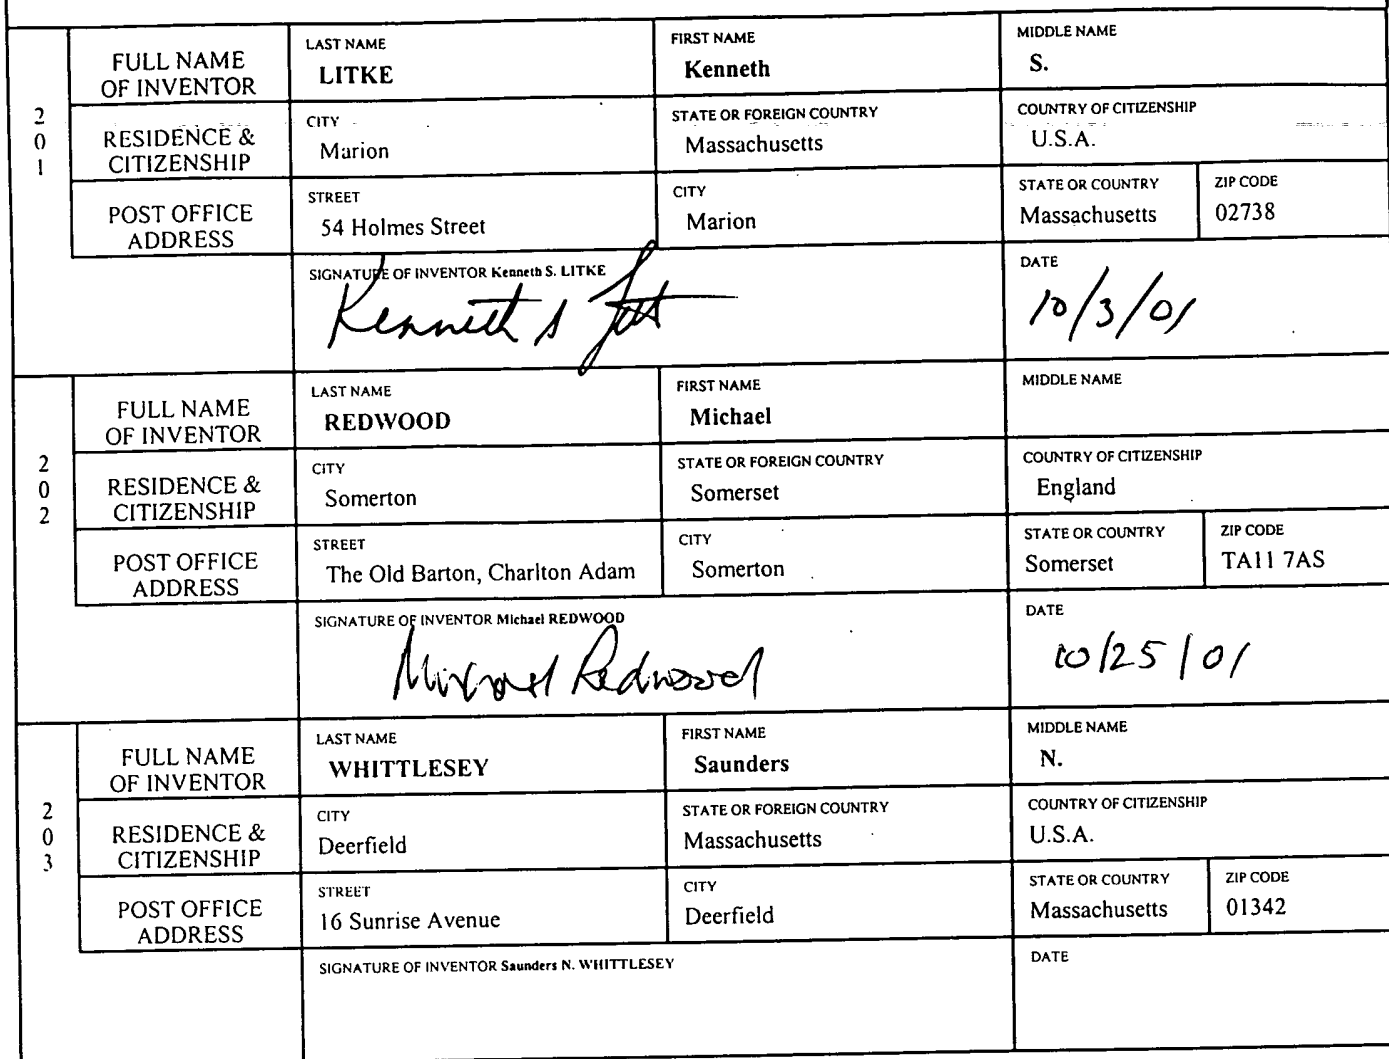 2
0
1
FULL NAME
OF INVENTOR
LAST NAME
LITKE
FIRST NAME
Kenneth
MIDDLE NAME
S.
RESIDENCE &
CITIZENSHIP
CITY
Marion
STATE OR FOREIGN COUNTRY
Massachusetts
COUNTRY OF CITIZENSHIP
U.S.A.
POST OFFICE
ADDRESS
STREET
54 Holmes Street
CITY
Marion
STATE OR COUNTRY
Massachusetts
ZIP CODE
02738
SIGNATURE OF INVENTOR Kenneth S. LITKE
Kenneth S
DATE
10/3/01
2
0
2
FULL NAME
OF INVENTOR
LAST NAME
REDWOOD
FIRST NAME
Michael
MIDDLE NAME
RESIDENCE &
CITIZENSHIP
CITY
Somerton
STATE OR FOREIGN COUNTRY
Somerset
COUNTRY OF CITIZENSHIP
England
POST OFFICE
ADDRESS
STREET
The Old Barton, Charlton Adam
CITY
Somerton
STATE OR COUNTRY
Somerset
ZIP CODE
TA11 7AS
SIGNATURE OF INVENTOR Michael REDWOOD
Michael Redwood
DATE
10/25/01
2
0
3
FULL NAME
OF INVENTOR
LAST NAME
WHITTLESEY
FIRST NAME
Saunders
MIDDLE NAME
N.
RESIDENCE &
CITIZENSHIP
CITY
Deerfield
STATE OR FOREIGN COUNTRY
Massachusetts
COUNTRY OF CITIZENSHIP
U.S.A.
POST OFFICE
ADDRESS
STREET
16 Sunrise Avenue
CITY
Deerfield
STATE OR COUNTRY
Massachusetts
ZIP CODE
01342
SIGNATURE OF INVENTOR Saunders N. WHITTLESEY
DATE